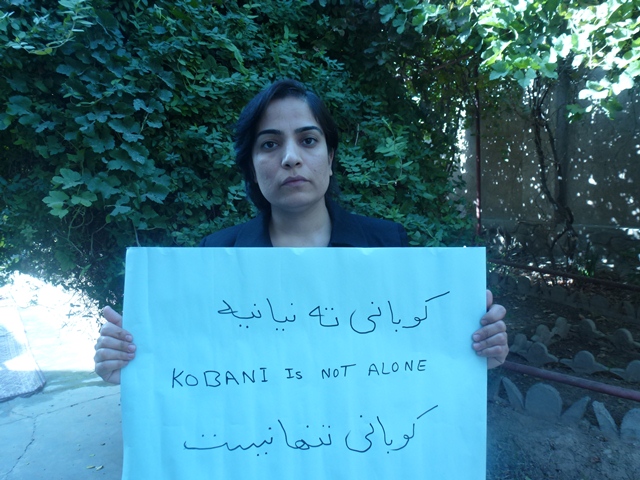 کوبانی ته نیانیه
KOBANI IS NOT ALONE
کوبانی تنها نیست